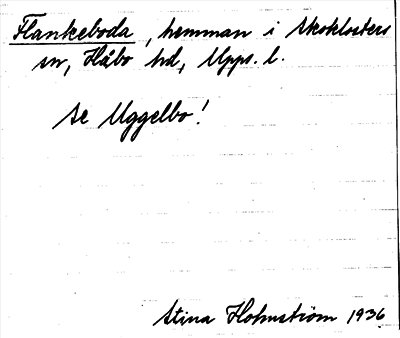 Flankeboda, hemman i Skoklosters
sn, Håbo hd, Upps. l.
Se Uggelbo!
Stina Holmström 1936